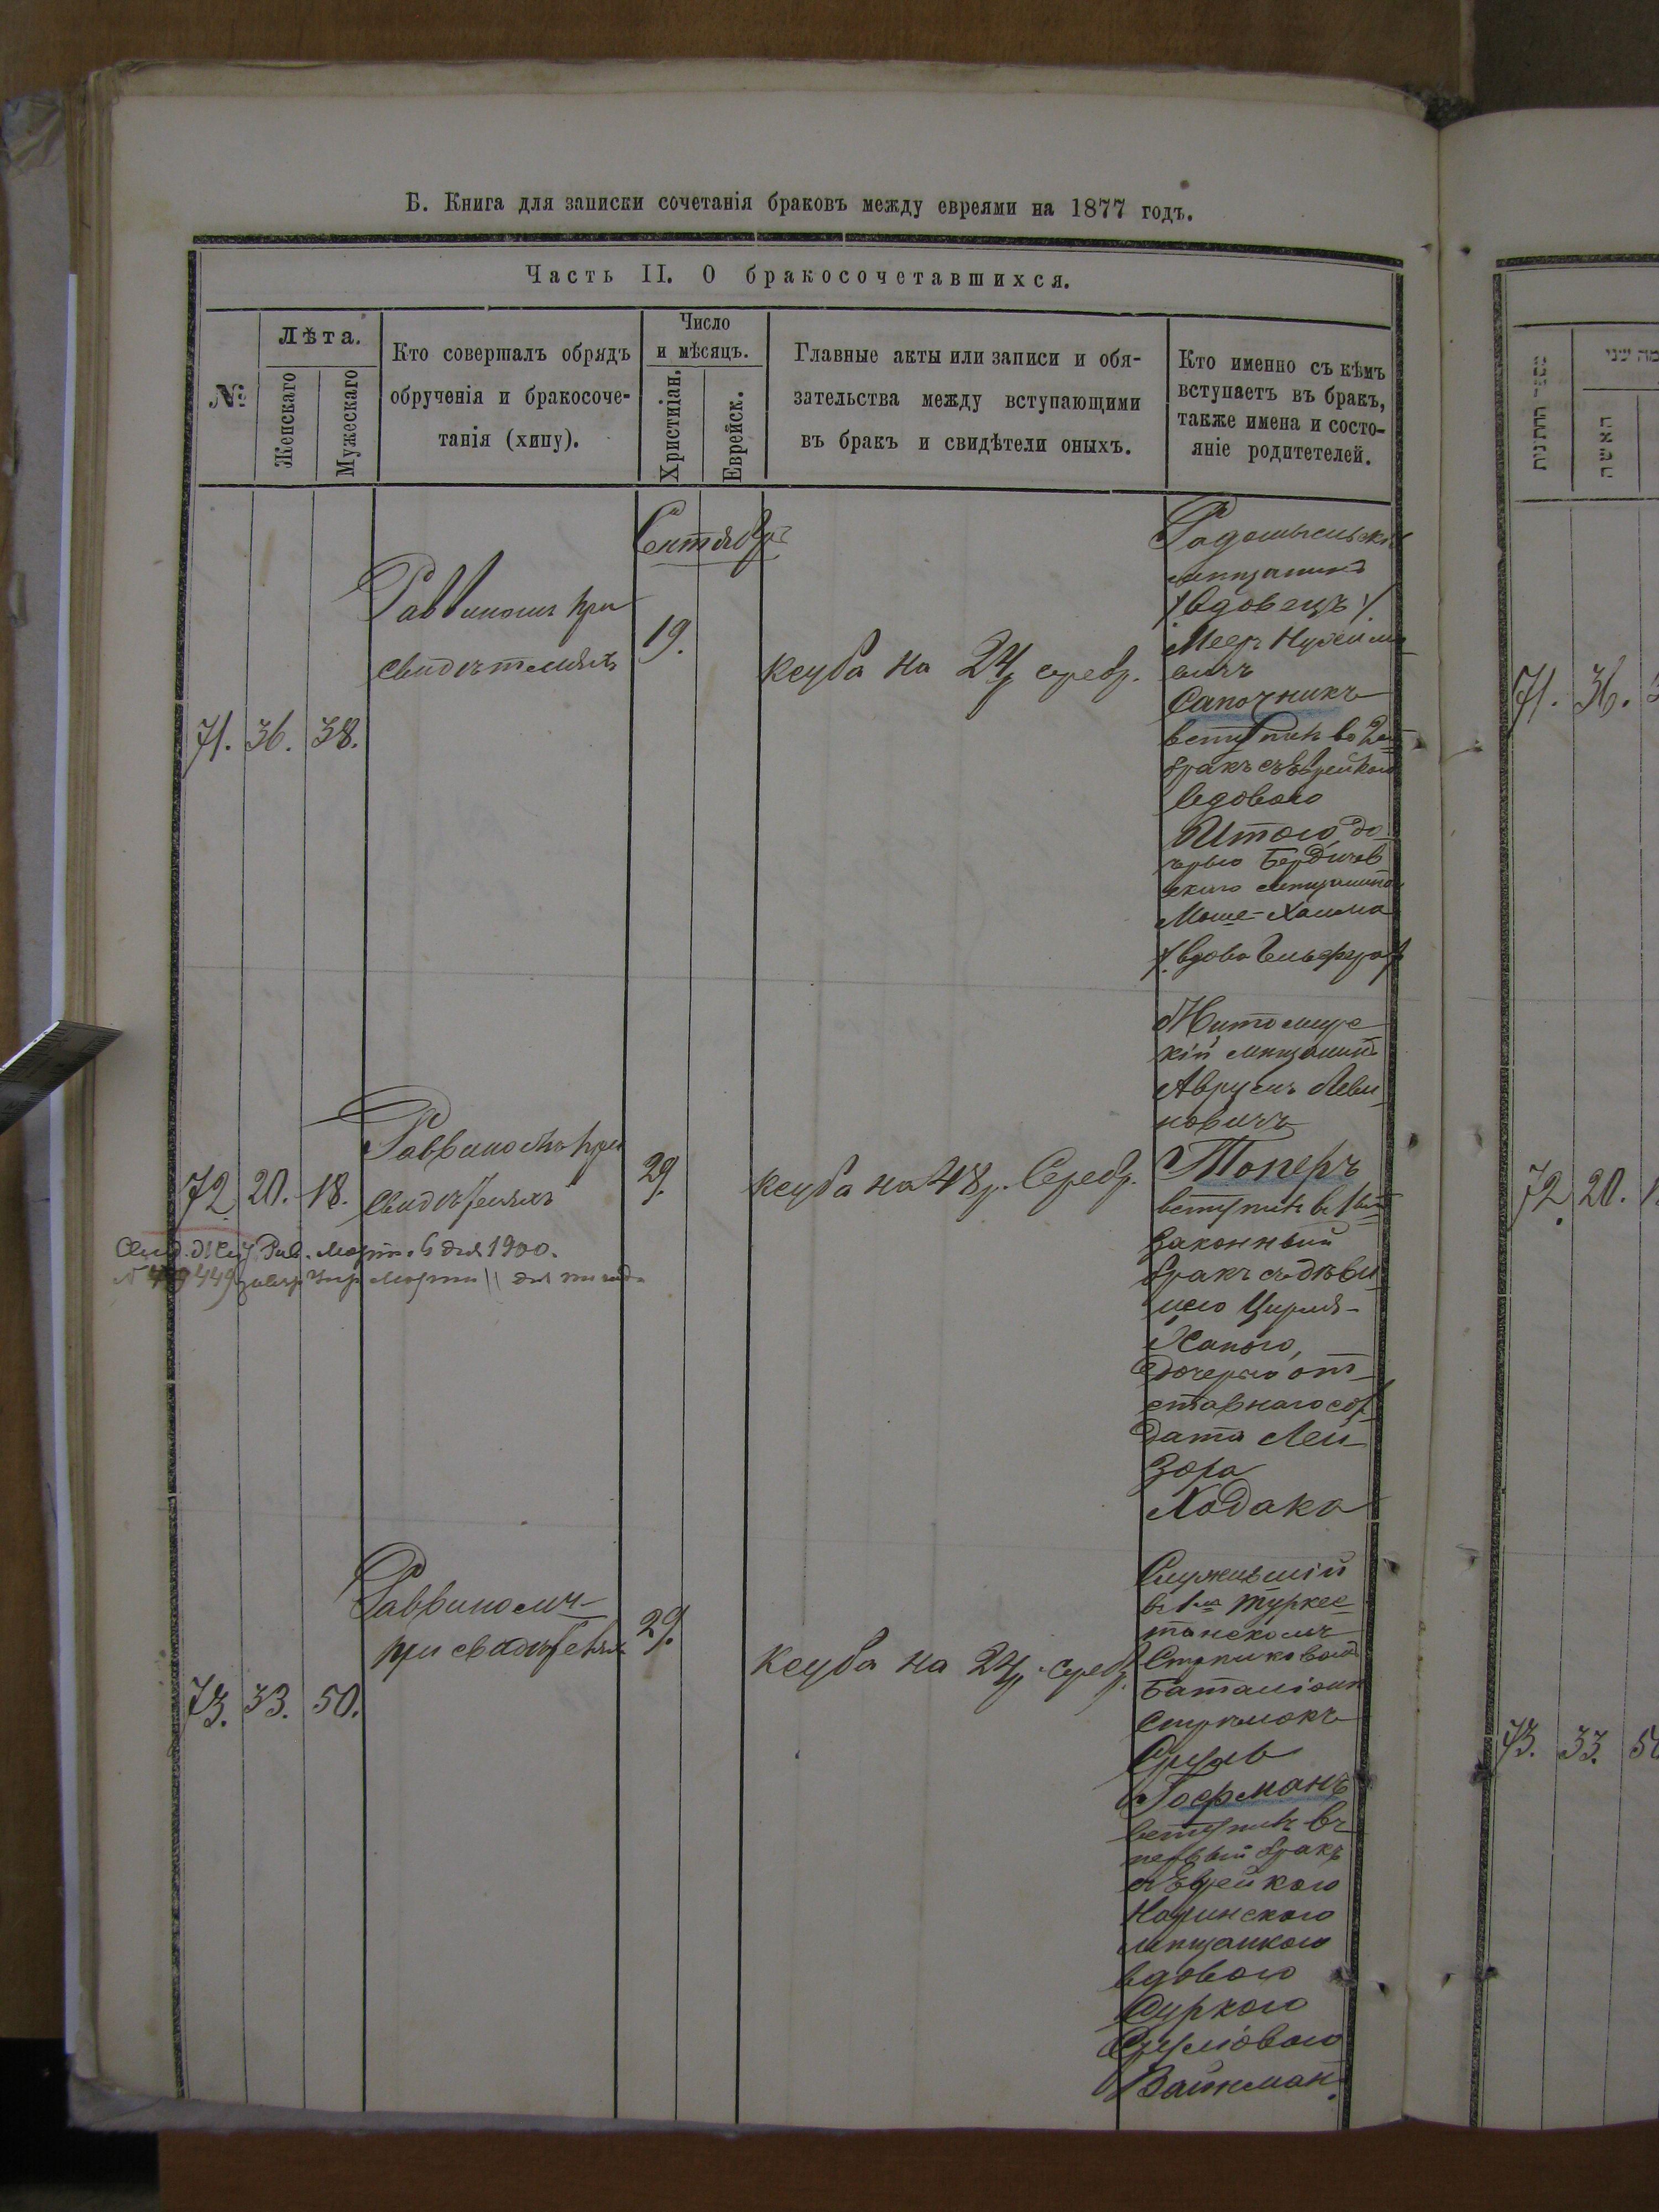 Б. Книга для записки сочетанія браковъ между евреями на 1877 годъ.
Часть II. О бракосочетавшихся.
№
Лѣта.
Женскаго
Мужескаго
Кто совершалъ обрядъ
обрученія и бракосоче-
танія (хипу).
Число
и мѣсяцъ.
Христиіан.
Еврейск.
Главные акты или записи и обя-
зательства между вступающими
въ бракъ и свидѣтели оныхъ.
Кто именно съ кѣмъ
вступаетъ въ бракъ,
также имена и состо-
яніе родитетелей.
Сентябрь
71. 36. 38.
Раввиномъ при
свидѣтеляхъ
19.
ксуба на 24 р серебр.
Радомысльскій
мѣщанинъ
(вдовецъ)
Меер
вичъ
Сапочникъ
вступилъ во 2ой
бракъ съ Еврейкою
вдовою
Итою, до-
черью Бердичев
скаго мѣщанина
Моше-Хаима
72. 20. 18.
Раввиномъ при
свидѣтеляхъ
29.
ксуба на 48 р. Серебр.
Житомирс
кій мѣщанинъ
Аврумъ Леви
новичъ
Топеръ
вступилъ въ 1вый
законный
бракъ съ дѣви
цею Цирля-
Ханою,
дочерью от-
ставнаго сол
дата Лей
зора
Ходака
1900.
449
73. 33. 50.
Раввиномъ
при свидѣтеляхъ
29.
ксуба на 24 р. серебр.
Служившій
въ 1мъ Туркес
танскомъ
Стрѣлковомъ
Баталіонѣ
Стрѣлокъ
Сруль
Гофманъ
вступилъ въ
первый бракъ
съ Еврейкою
мѣщанкою
вдовою
Суркою
Срулiовою
Вайнман.
מה שני
האשה
71. 36. 3
72. 20. 1
73. 33. 50